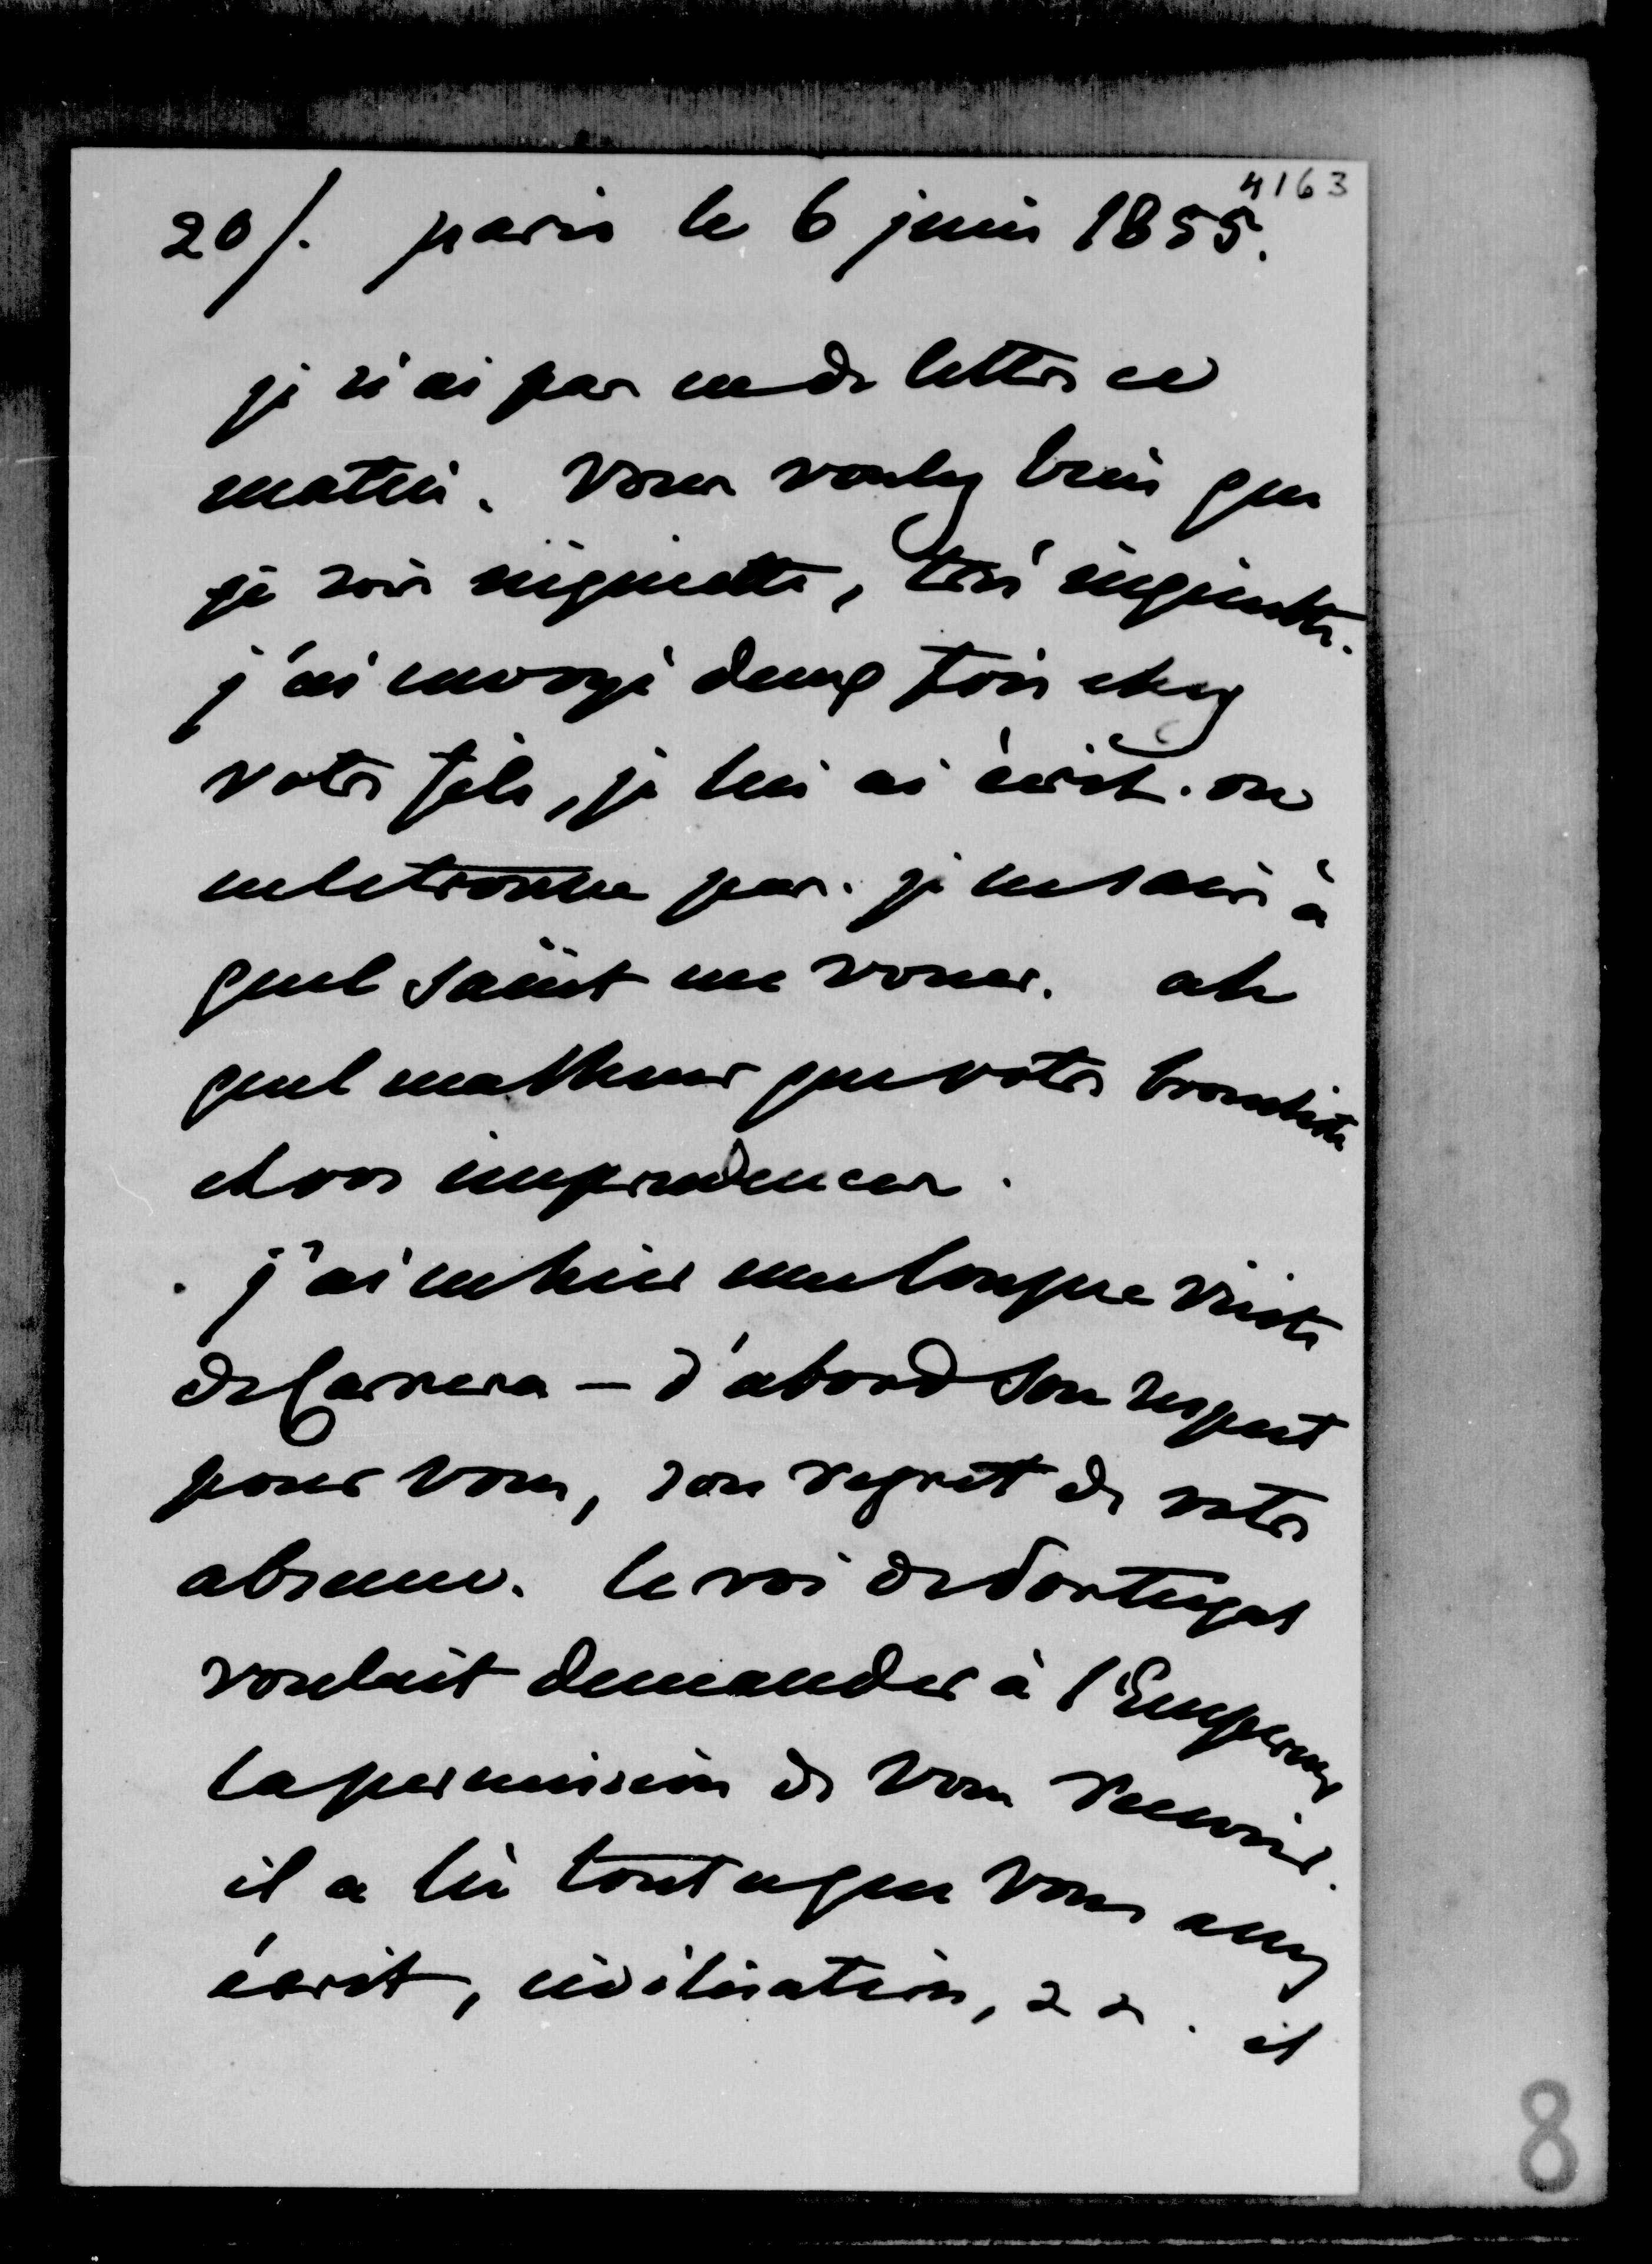 4163
20/. paris le 6 juin 1855.
je n'ai pas eu de lettre ce
matin. Vous voulez bien que
je sois inquiette, très inquiette.
j'ai envoyé deux fois chez
votre fils, je lui ai écrit. on
ne le trouve pas. je ne sais à
quel saint me vouer. ah
quel malheur que votre bronchite
et vos imprudences.
j'ai eu hier une longue visite
de Carrera — d'abord son respect
pour vous, son regret de votre
absence. le roi de Portugal
voulait demander à l'Empereur
la permission de vous recevoir.
il a lu tout ce que vous avez
écrit, civilisation, &&. il
8